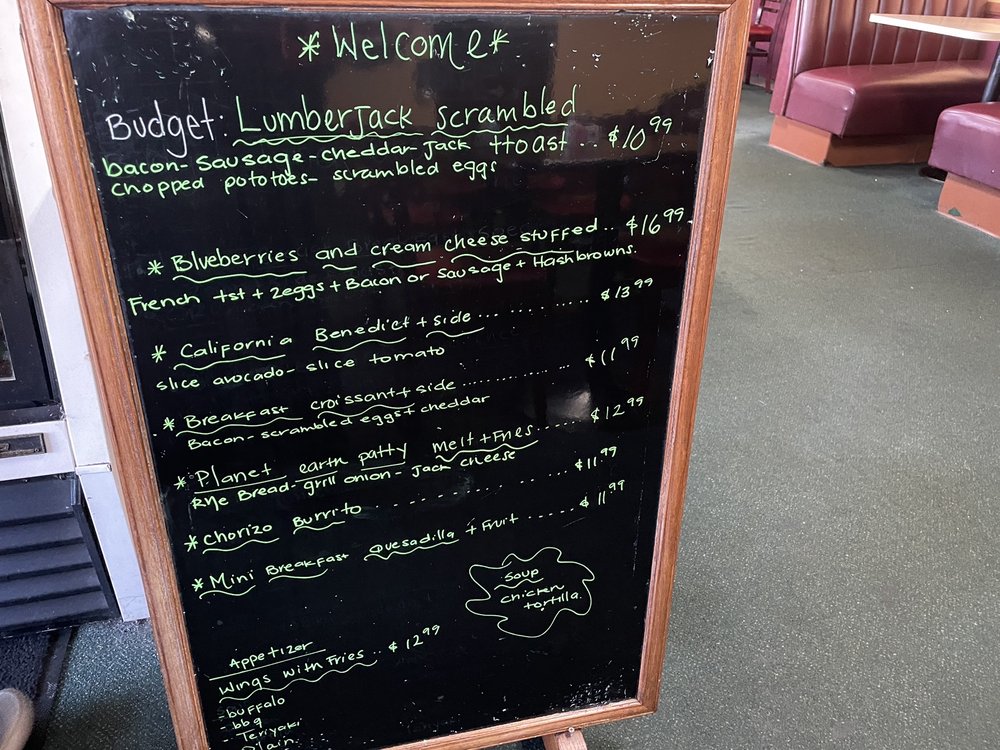 *Welcome*
Budget: Lumberjack scrambled
bacon-sausage-cheddar-jack ttoast .. $10.99
chopped pototoes- scrambled eggs
* Blueberries and cream cheese stuffed.. $16.99
French tst + 2eggs + Bacon or Sausage + Hashbrowns.
* California Benedict + side ... ... ....... $13.99
slice avocado- slice tomato
* Breakfast croissant + side ............. ... $11.99
Bacon- scrambled eggs + cheddar
* Planet earth patty melt + Fries ..... $12.99
Rye Bread- grill onion- Jack cheese
* Chorizo Burrito . .. ... ... ... $11.99
* Mini Breakfast Quesadilla + Fruit ..... $11.99
soup
chicken
tortilla.
Appetizer
wings with Fries.. $12.99
-buffalo
-bbq
- Teriyaki
Plain